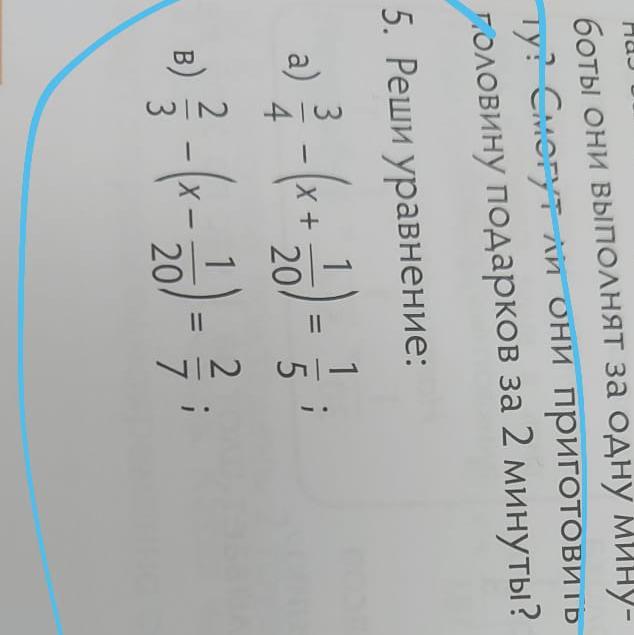 боты они выполнят за одну мину-
ту? Смогут ли они приготовить
половину подарков за 2 минуты?
5. Реши уравнение:
а) 3/4 − (x + 1/20) = 1/5 ;
в) 2/3 − (x − 1/20) = 2/7 ;